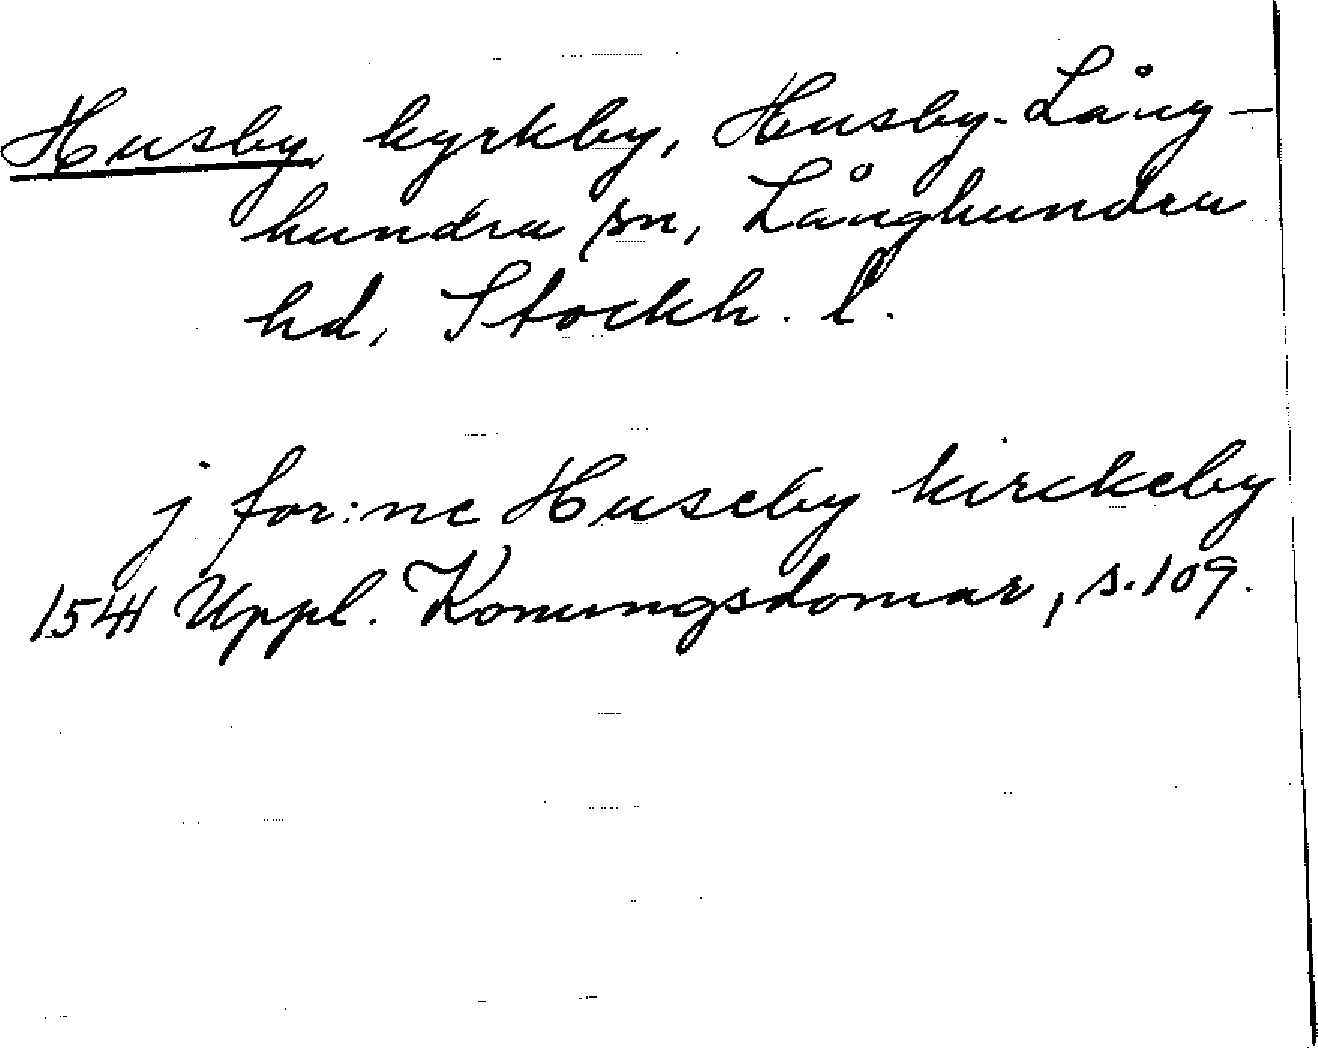 Husby, kyrkby, Husby-Lång-
hundra sn, Långhundra
hd, Stockh. l.
j for:ne Huseby kirckeby
1541 Uppl. Konungsdomar, s. 109.